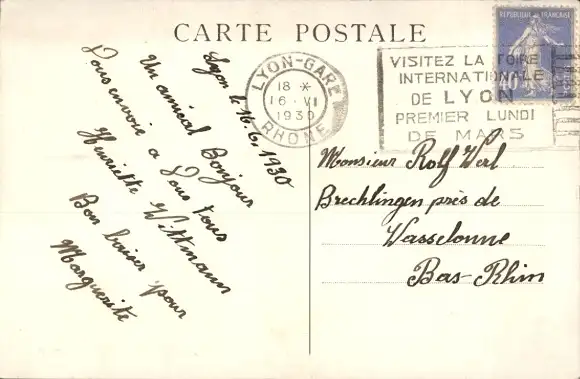 CARTE POSTALE
Lyon le 16.6.1930
Un amical Bonjour
Vous envoie a Vous tous
Henriette Wittmann
Bon baiser pour
Marguerite
LYON-GARE
18 *
16 · VI
1930
RHONE
VISITEZ LA FOIRE
INTERNATIONALE
DE LYON
PREMIER LUNDI
DE MARS
REPUBLIQUE FRANÇAISE
Monsieur Rolf Werl
Brechlingen près de
Wasselonne
Bas-Rhin